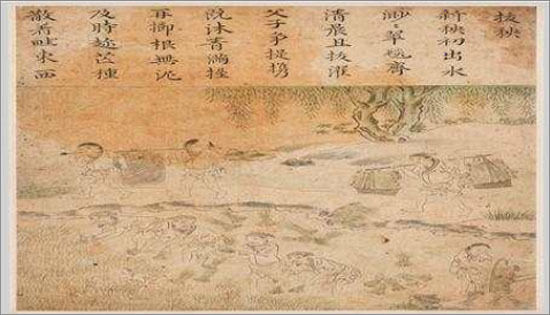 拔秧
新秧初出水
渺〻翠毯齊
清晨且拔擢
父子爭提携
既沐青滿握
再櫛根無泥
及時趁芒種
散著畦東西